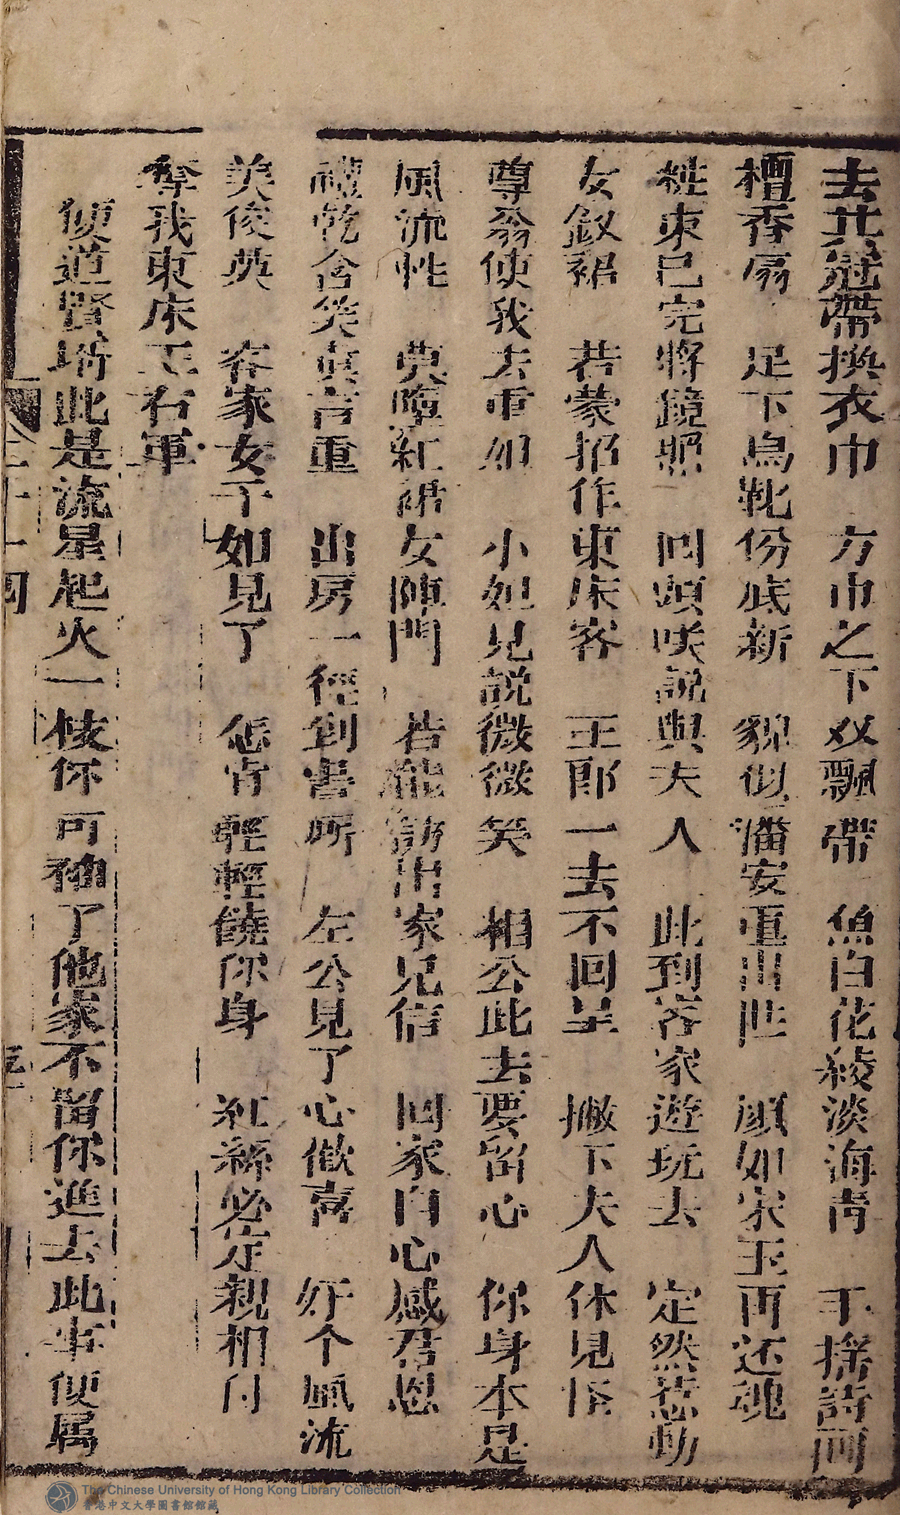 去其冠帶換衣巾　方巾之下双飄帶　魚白花綾淡海青　手搖詩画
檀香扇　足下烏靴份底新　貌似潘安重出世　顏如宋玉再还魂
粧束已完將鏡照　回頭咲説與夫人　此到容家遊玩去　定然惹動
女釵裙　若蒙招作東床客　王郎一去不回呈　撇下夫人休見怪
尊翁使我去重姻　小姐見説微微笑　相公此去要留心　你身本是
風流性　莫墮紅裙女陣門　若能訪出家兄信　回家自心感君恩
禮乾含笑真言重　出房一徑到書房　左公見了心歡喜　好个風流
美俊英　容家女子如見了　怎肯輕輕饒你身　紅絲必定親相付
奪我東床王右軍
便道賢壻此是流星起火一枝你可袖了他家不留你進去此事便属
The Chinese University of Hong Kong Library Collection
香港中文大學圖書館館藏